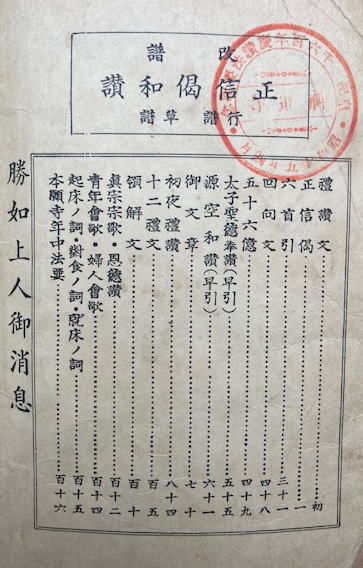 改譜
正信偈和讃
行譜 草譜
禮讃文……初
正信偈……一
六首引……三十一
回向文……四十八
五十六億……四十九
太子聖德奉讃(早引)……五十五
源空和讃(早引)……六十一
御文章……七十
初夜禮讃……八十四
十二禮文……百五
領解文……百十
眞宗宗歌・恩德讃……百十二
青年會歌・婦人會歌……百十四
起床ノ詞・對食ノ詞・就床ノ詞……百十五
本願寺年中法要……百十六
勝如上人御消息